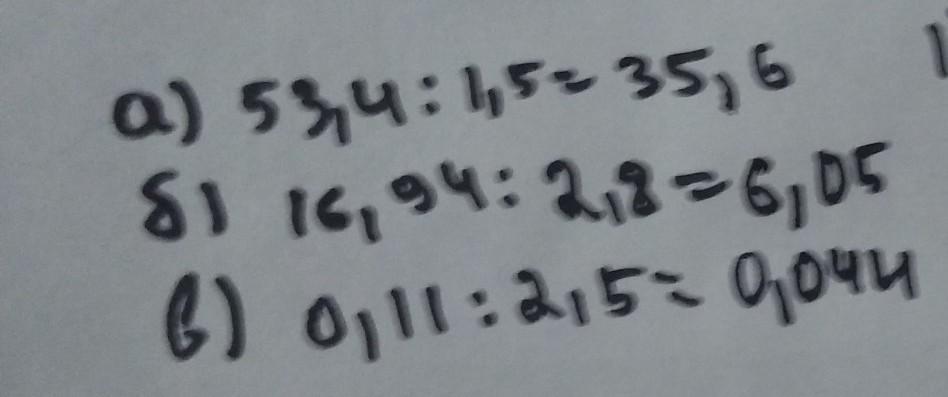 а) 53,4 : 1,5 = 35,6
б) 16,94 : 2,8 = 6,05
в) 0,11 : 2,5 = 0,044